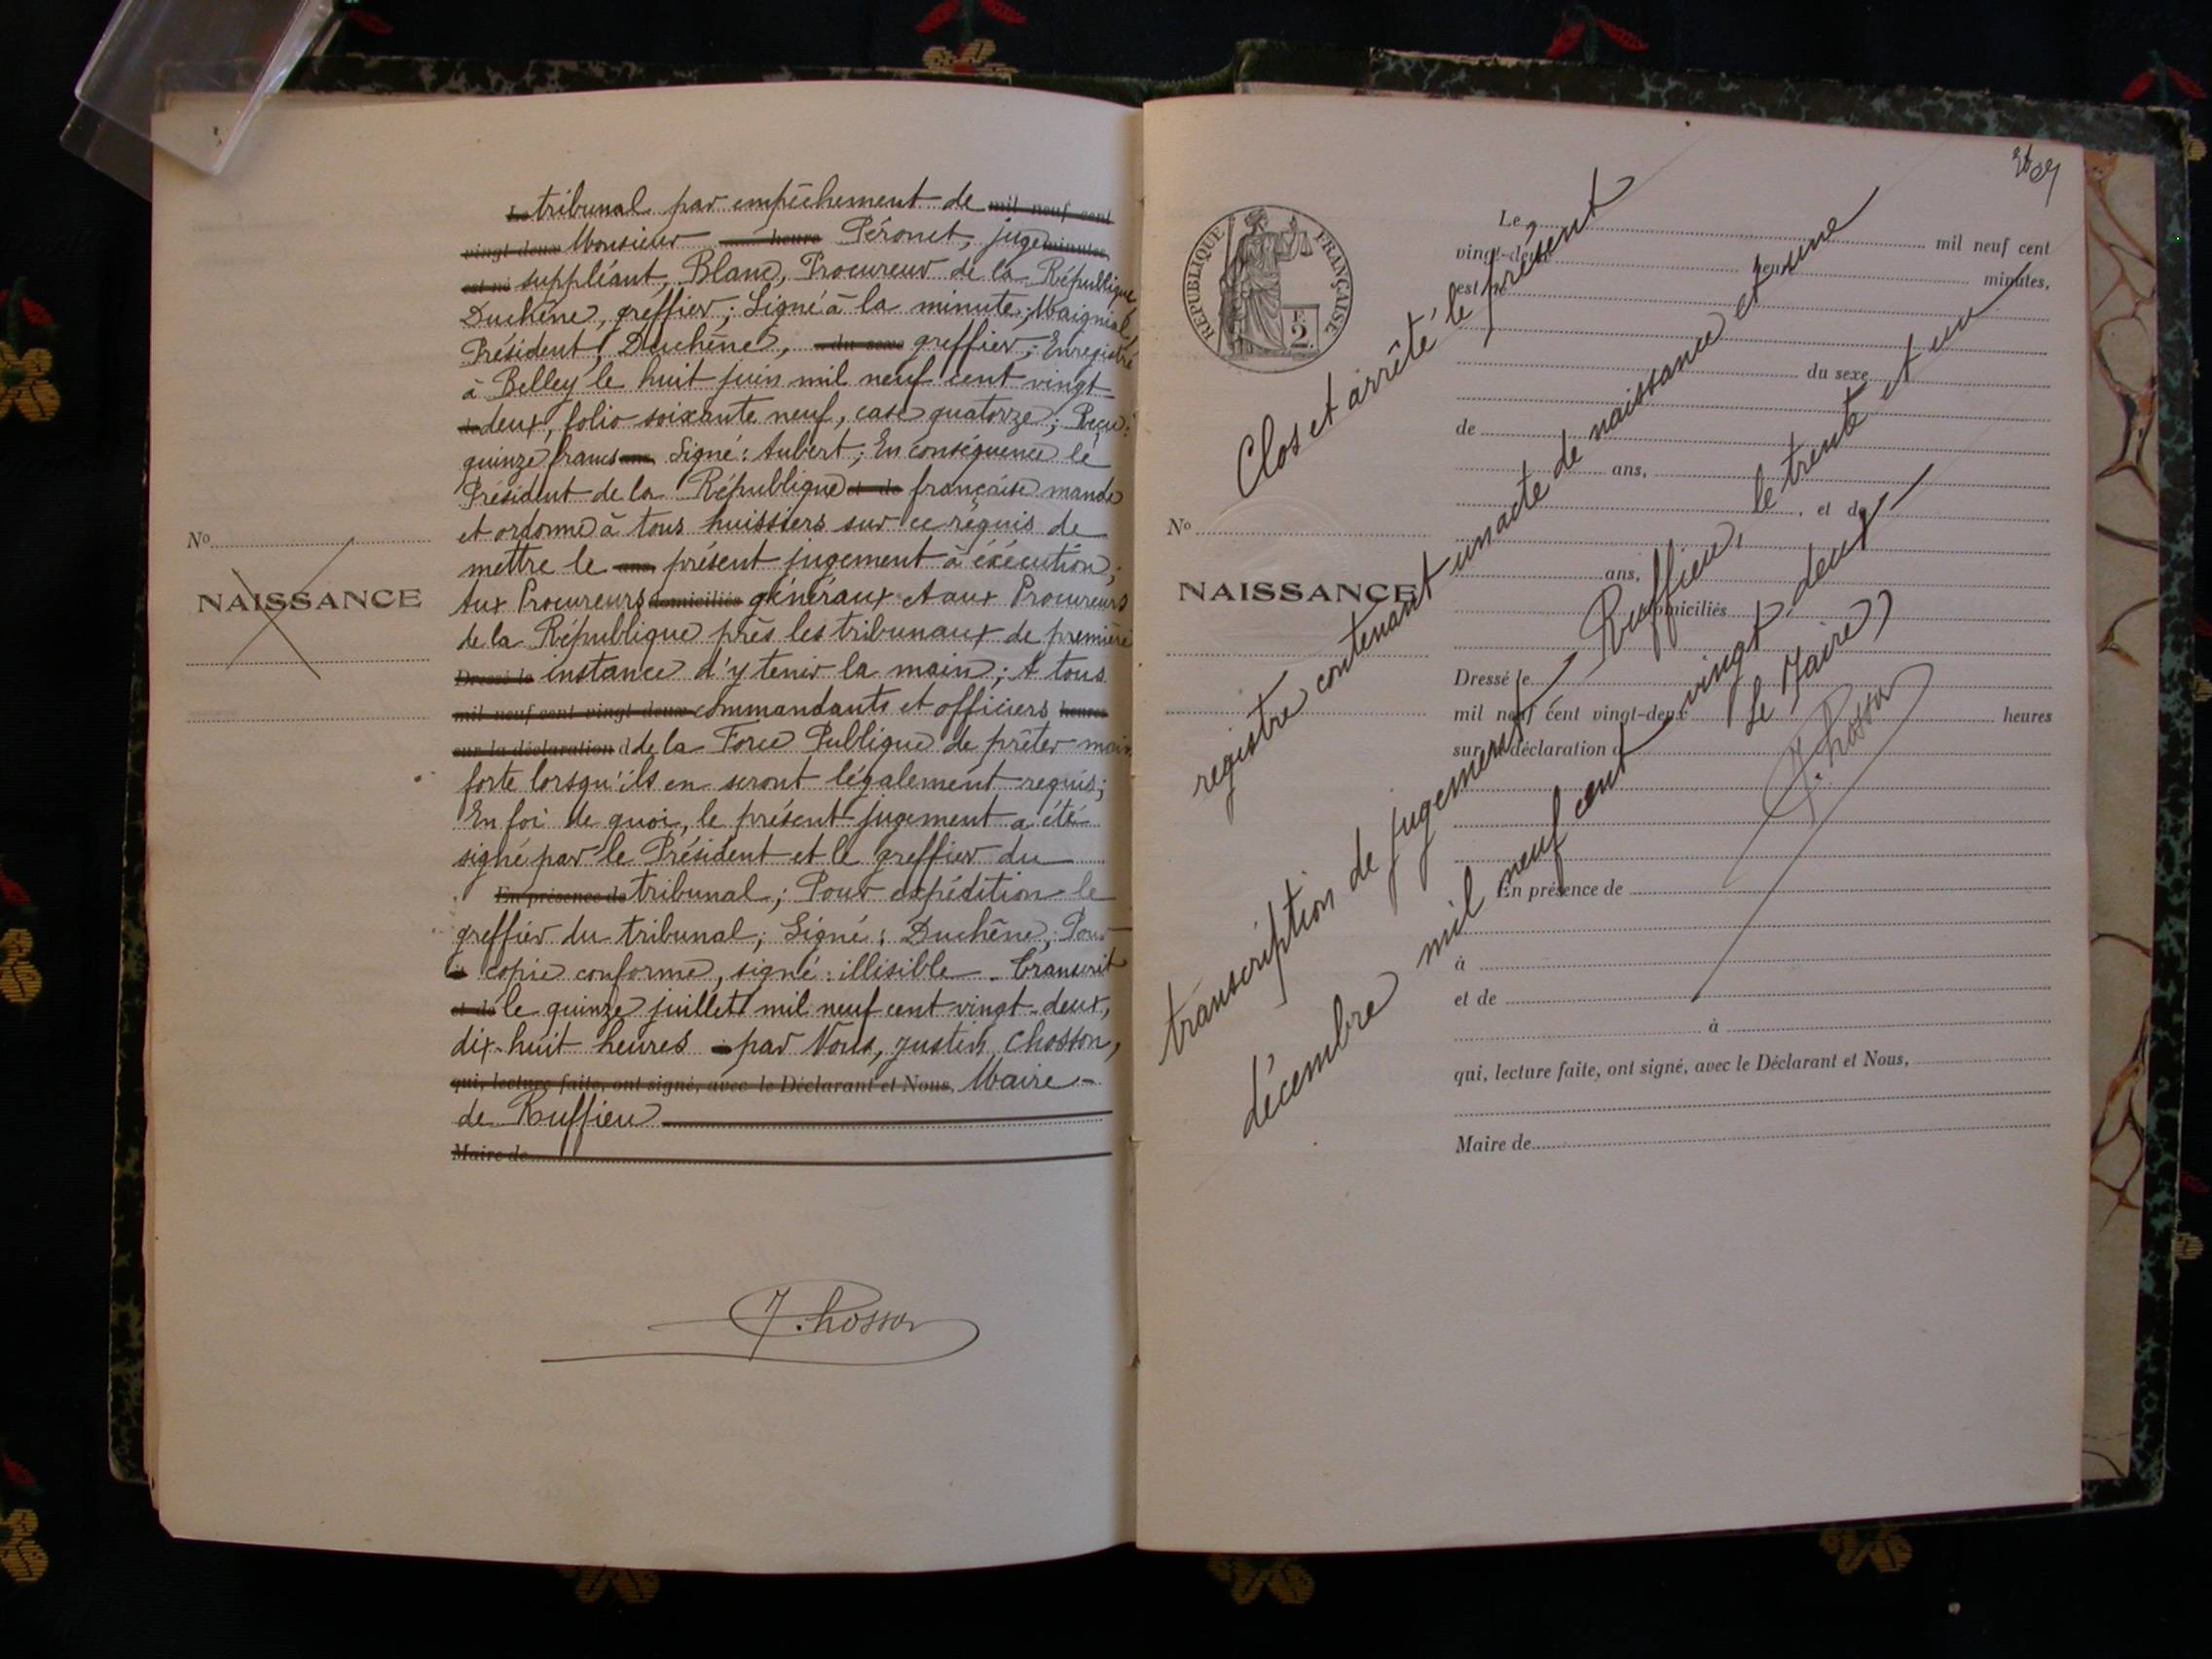 tribunal par empêchement de mil neuf cent
vingt-deux Monsieur heure Péronet, juge minutes
est né suppléant, Blanc, Procureur de la République
Duchêne, greffier; Signé à la minute; Maignial
Président, Duchêne, du sexe greffier; Enregistré
à Belley le huit juin mil neuf cent vingt
de deux, folio soixante neuf, case quatorze; Reçu:
quinze francs ans, Signé: Aubert; En conséquence le
Président de la République et de française mande
et ordonne à tous huissiers sur ce requis de
mettre le ans, présent jugement à éxécution;
Aux Procureurs domiciliés généraux et aux Procureurs
de la République près les tribunaux de première
Dressé le instance d'y tenir la main; A tous
mil neuf cent vingt-deux commandants et officiers heures
sur la déclaration d de la Force Publique de prêter main
forte lorsqu'ils en seront légalement requis;
En foi de quoi, le présent jugement a été
signé par le Président et le greffier du
En présence de tribunal; Pour expédition le
greffier du tribunal; Signé: Duchêne; Pour
à copie conforme, signé: illisible. Transcrit
et de le quinze juillet mil neuf cent vingt-deux,
dix-huit heures à par Nous, Justin Chosson,
qui, lecture faite, ont signé, avec le Déclarant et Nous, Maire
de Ruffieu
Maire de
J. Chosson
No
NAISSANCE
RÉPUBLIQUE FRANÇAISE
2
F.
No
NAISSANCE
Le
mil neuf cent
vingt-deux heure minutes,
est né
du sexe
de
ans,
, et de
ans,
domiciliés
Dressé le
mil neuf cent vingt-deux heures
sur la déclaration d
En présence de
à
et de
à
qui, lecture faite, ont signé, avec le Déclarant et Nous,
Maire de
Clos et arrêté le présent
registre contenant un acte de naissance et une
transcription de jugement, Ruffieu, le trente et un
décembre mil neuf cent vingt-deux
Le Maire
J. Chosson